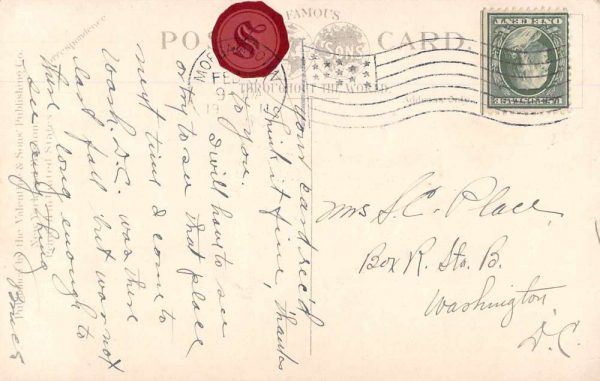 FAMOUS
POST CARD.
SONS
THROUGHOUT THE WORLD
FEB
9
S
your card rec'd
think it fine, thanks
to you.
I will have to see
or try to see that place
next time I come to
Wash. D.C. was there
last fall but was not
there long enough to
see anything
Mrs S. C. Place,
Box R. Sta. B.
Washington
D.C.
Correspondence
by the Valentine & Sons' Publishing Co.